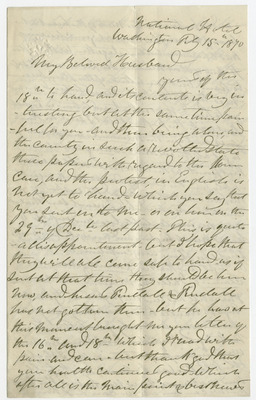 National Hotel
Washington City 15th 1870
My Beloved Husband
yours of the
18th to hand and it contents is very in
teresting but at the same time pain
ful for you and then being alone and
the country in such a
these papers with regard to the
Case, and the protest in English is
not yet to hand which you say that
you sent with the
29th of Dec last past. This is quite
a disappointment but I hope that
they will all come safe to hand, as if
sent at that time they should be here
now, and
has not gotten them but he has at
this moment brought me your letter of
the 16th and 18th which I read with
pain and care but thank god that
your health continues good which
after all is the main point